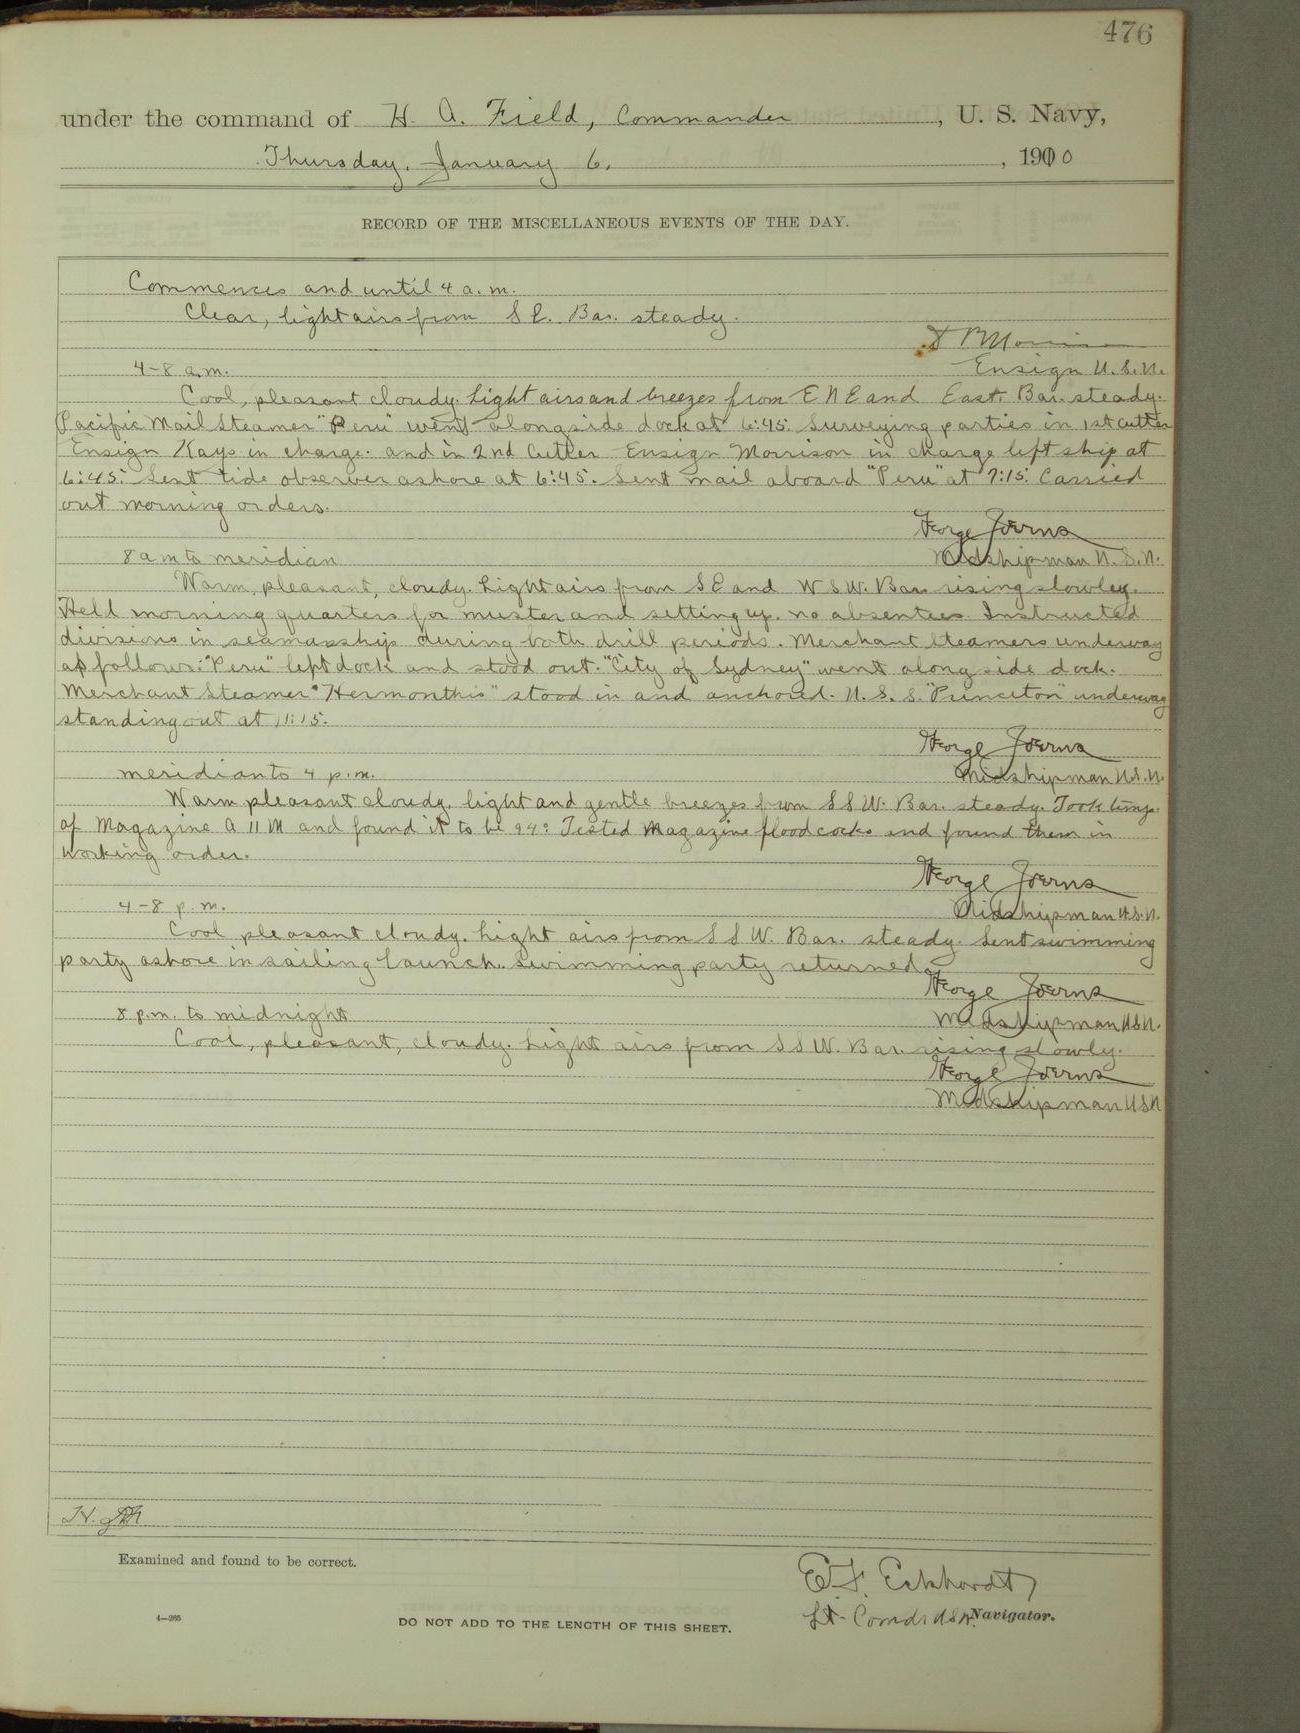 476
under the command of H. A. Field, Commander, U. S. Navy,
Thursday, January 6, 1910
RECORD OF THE MISCELLANEOUS EVENTS OF THE DAY.
Commences and until 4 a.m.
Clear, light airs from S E. Bar. steady.
Morrison
4-8 a.m. Ensign U.S.N.
Cool, pleasant cloudy. Light airs and breezes from E N E and East. Bar. steady.
Pacific Mail Steamer "Peru" went alongside dock at 6:45. Surveying parties in 1st Cutter
Ensign Kays in charge. and in 2nd Cutter Ensign Morrison in charge left ship at
6:45. Sent tide observer ashore at 6:45. Sent mail aboard "Peru" at 7:15. Carried
out morning orders.
George Joerns
8 a m to meridian Midshipman U.S.N.
Warm, pleasant, cloudy. Light airs from S E and W S W. Bar. rising slowley.
Held morning quarters for muster and setting up. no absentees. Instructed
divisions in seamanship during both drill periods. Merchant Steamers underway
as follows: "Peru" left dock and stood out. "City of Sydney" went along side dock.
Merchant Steamer "Hermonthis" stood in and anchored. U.S.S. "Princeton" underway
standing out at 11:15.
George Joerns
meridian to 4 p.m. Midshipman U.S.N.
Warm pleasant cloudy. light and gentle breezes from S S W. Bar. steady. Took temp.
of Magazine A 11 M and found it to be 94° Tested Magazine floodcocks and found them in
working order.
George Joerns
4-8 p.m. Midshipman U.S.N.
Cool pleasant cloudy. Light airs from S S W. Bar. steady. Sent swimming
party ashore in sailing launch. Swimming party returned.
George Joerns
8 p.m. to midnight Midshipman U.S.N.
Cool, pleasant, cloudy. Light airs from S S W. Bar. rising slowly.
George Joerns
Midshipman U.S.N
Examined and found to be correct.
E. F. Eckhardt
Lt. Comdr U.S.N. Navigator.
4—265
DO NOT ADD TO THE LENGTH OF THIS SHEET.